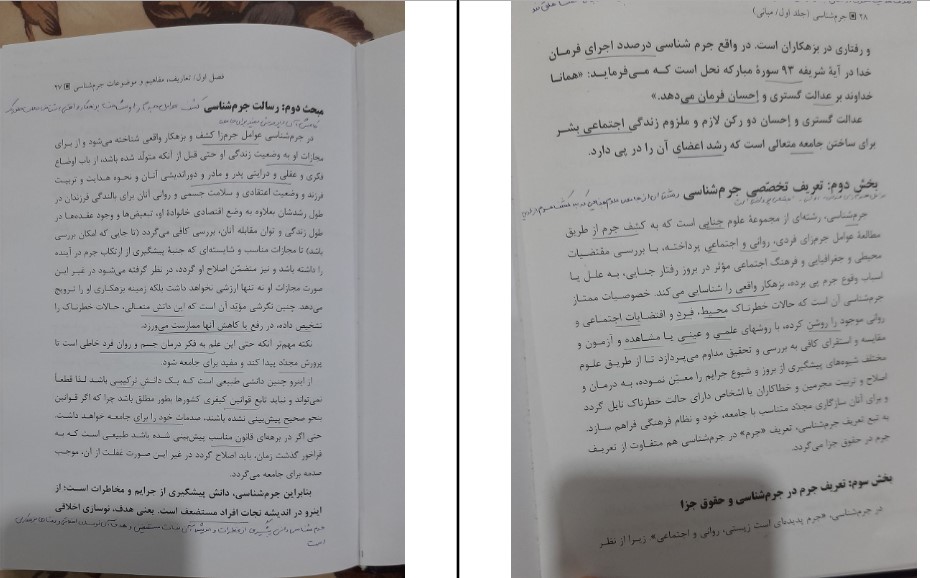 فصل اول: تعاریف، مفاهیم و موضوعات جرم‌شناسی ۲۷
مبحث دوم: رسالت جرم‌شناسی
در جرم‌شناسی عوامل جرم‌زا کشف و بزهکار واقعی شناخته می‌شود و از برای
مجازات او به وضعیت زندگی او حتی قبل از آنکه متولّد شده باشد، از باب اوضاع
فکری و عقلی و درایتی پدر و مادر و دوراندیشی آنان و نحوه هدایت و تربیت
فرزند و وضعیت اعتقادی و سلامت جسمی و روانی آنان برای بالندگی فرزندان در
طول رشدشان بعلاوه به وضع اقتصادی خانوادۀ او، تبعیض‌ها و وجود عقده‌ها در
طول زندگی و توان مقابله آنان، بررسی کافی می‌گردد (تا جایی که امکان بررسی
باشد) تا مجازات مناسب و شایسته‌ای که جنبۀ پیشگیری از ارتکاب جرم در آینده
را داشته باشد و نیز متضمّن اصلاح او گردد، در نظر گرفته می‌شود در غیر این
صورت مجازات او نه تنها ارزشی نخواهد داشت بلکه زمینه بزهکاری او را ترویج
می‌دهد چنین نگرشی مؤیّد آن است که این دانش متعالی، حالات خطرناک را
تشخیص داده، در رفع یا کاهش آنها ممارست می‌ورزد.
نکته مهم‌تر آنکه حتی این علم به فکر درمان جسم و روان فرد خاطی است تا
پرورش مجدّد پیدا کند و مفید برای جامعه شود.
از اینرو چنین دانشی طبیعی است که یک دانش ترکیبی باشد لذا قطعاً
نمی‌تواند و نباید تابع قوانین کیفری کشورها بطور مطلق باشد چرا که اگر قوانین
بنحو صحیح پیش‌بینی نشده باشند، صدمات خود را برای جامعه خواهید داشت.
حتی اگر در برهه‌ای قانون مناسب پیش‌بینی شده باشد طبیعی است که به
فراخور گذشت زمان، باید اصلاح گردد در غیر این صورت غفلت از آن، موجب
صدمه برای جامعه می‌گردد.
بنابراین جرم‌شناسی، دانش پیشگیری از جرایم و مخاطرات است؛ از
اینرو در اندیشه نجات افراد مستضعف است. یعنی هدف، نوسازی اخلاقی
۲۸ جرم‌شناسی (جلد اول/ مبانی)
و رفتاری در بزهکاران است. در واقع جرم شناسی درصدد اجرای فرمان
خدا در آیۀ شریفه ۹۳ سورۀ مبارکه نحل است که می‌فرماید: «همانا
خداوند بر عدالت گستری و إحسان فرمان می‌دهد.»
عدالت گستری و إحسان دو رکن لازم و ملزوم زندگی اجتماعی بشر
برای ساختن جامعه متعالی است که رشد اعضای آن را در پی دارد.
بخش دوم: تعریف تخصّصی جرم‌شناسی
جرم‌شناسی، رشته‌ای از مجموعۀ علوم جنایی است که به کشف جرم از طریق
مطالعۀ عوامل جرم‌زای فردی، روانی و اجتماعی پرداخته، با بررسی مقتضیات
محیطی و جغرافیایی و فرهنگ اجتماعی مؤثر در بروز رفتار جنایی، به علل یا
اسباب وقوع جرم پی برده، بزهکار واقعی را شناسایی می‌کند. خصوصیات ممتاز
جرم‌شناسی آن است که حالات خطرناک محیط، فرد و اقتضایات اجتماعی و
روانی موجود را روشن کرده، با روشهای علمی و عینی یا مشاهده و آزمون و
مقایسه و استقرای کافی به بررسی و تحقیق مداوم می‌پردازد تا از طریق علوم
مختلف شیوه‌های پیشگیری از بروز و شیوع جرایم را معیّن نموده، به درمان و
اصلاح و تربیت مجرمین و خطاکاران یا اشخاص دارای حالت خطرناک نایل گردد
و برای آنان سازگاری مجدّد متناسب با جامعه، خود و نظام فرهنگی فراهم سازد.
به تبع تعریف جرم‌شناسی، تعریف «جرم» در جرم‌شناسی هم متفاوت از تعریف
جرم در حقوق جزا می‌گردد.
بخش سوم: تعریف جرم در جرم‌شناسی و حقوق جزا
در جرم‌شناسی، «جرم پدیده‌ای است زیستی، روانی و اجتماعی» زیرا از نظر